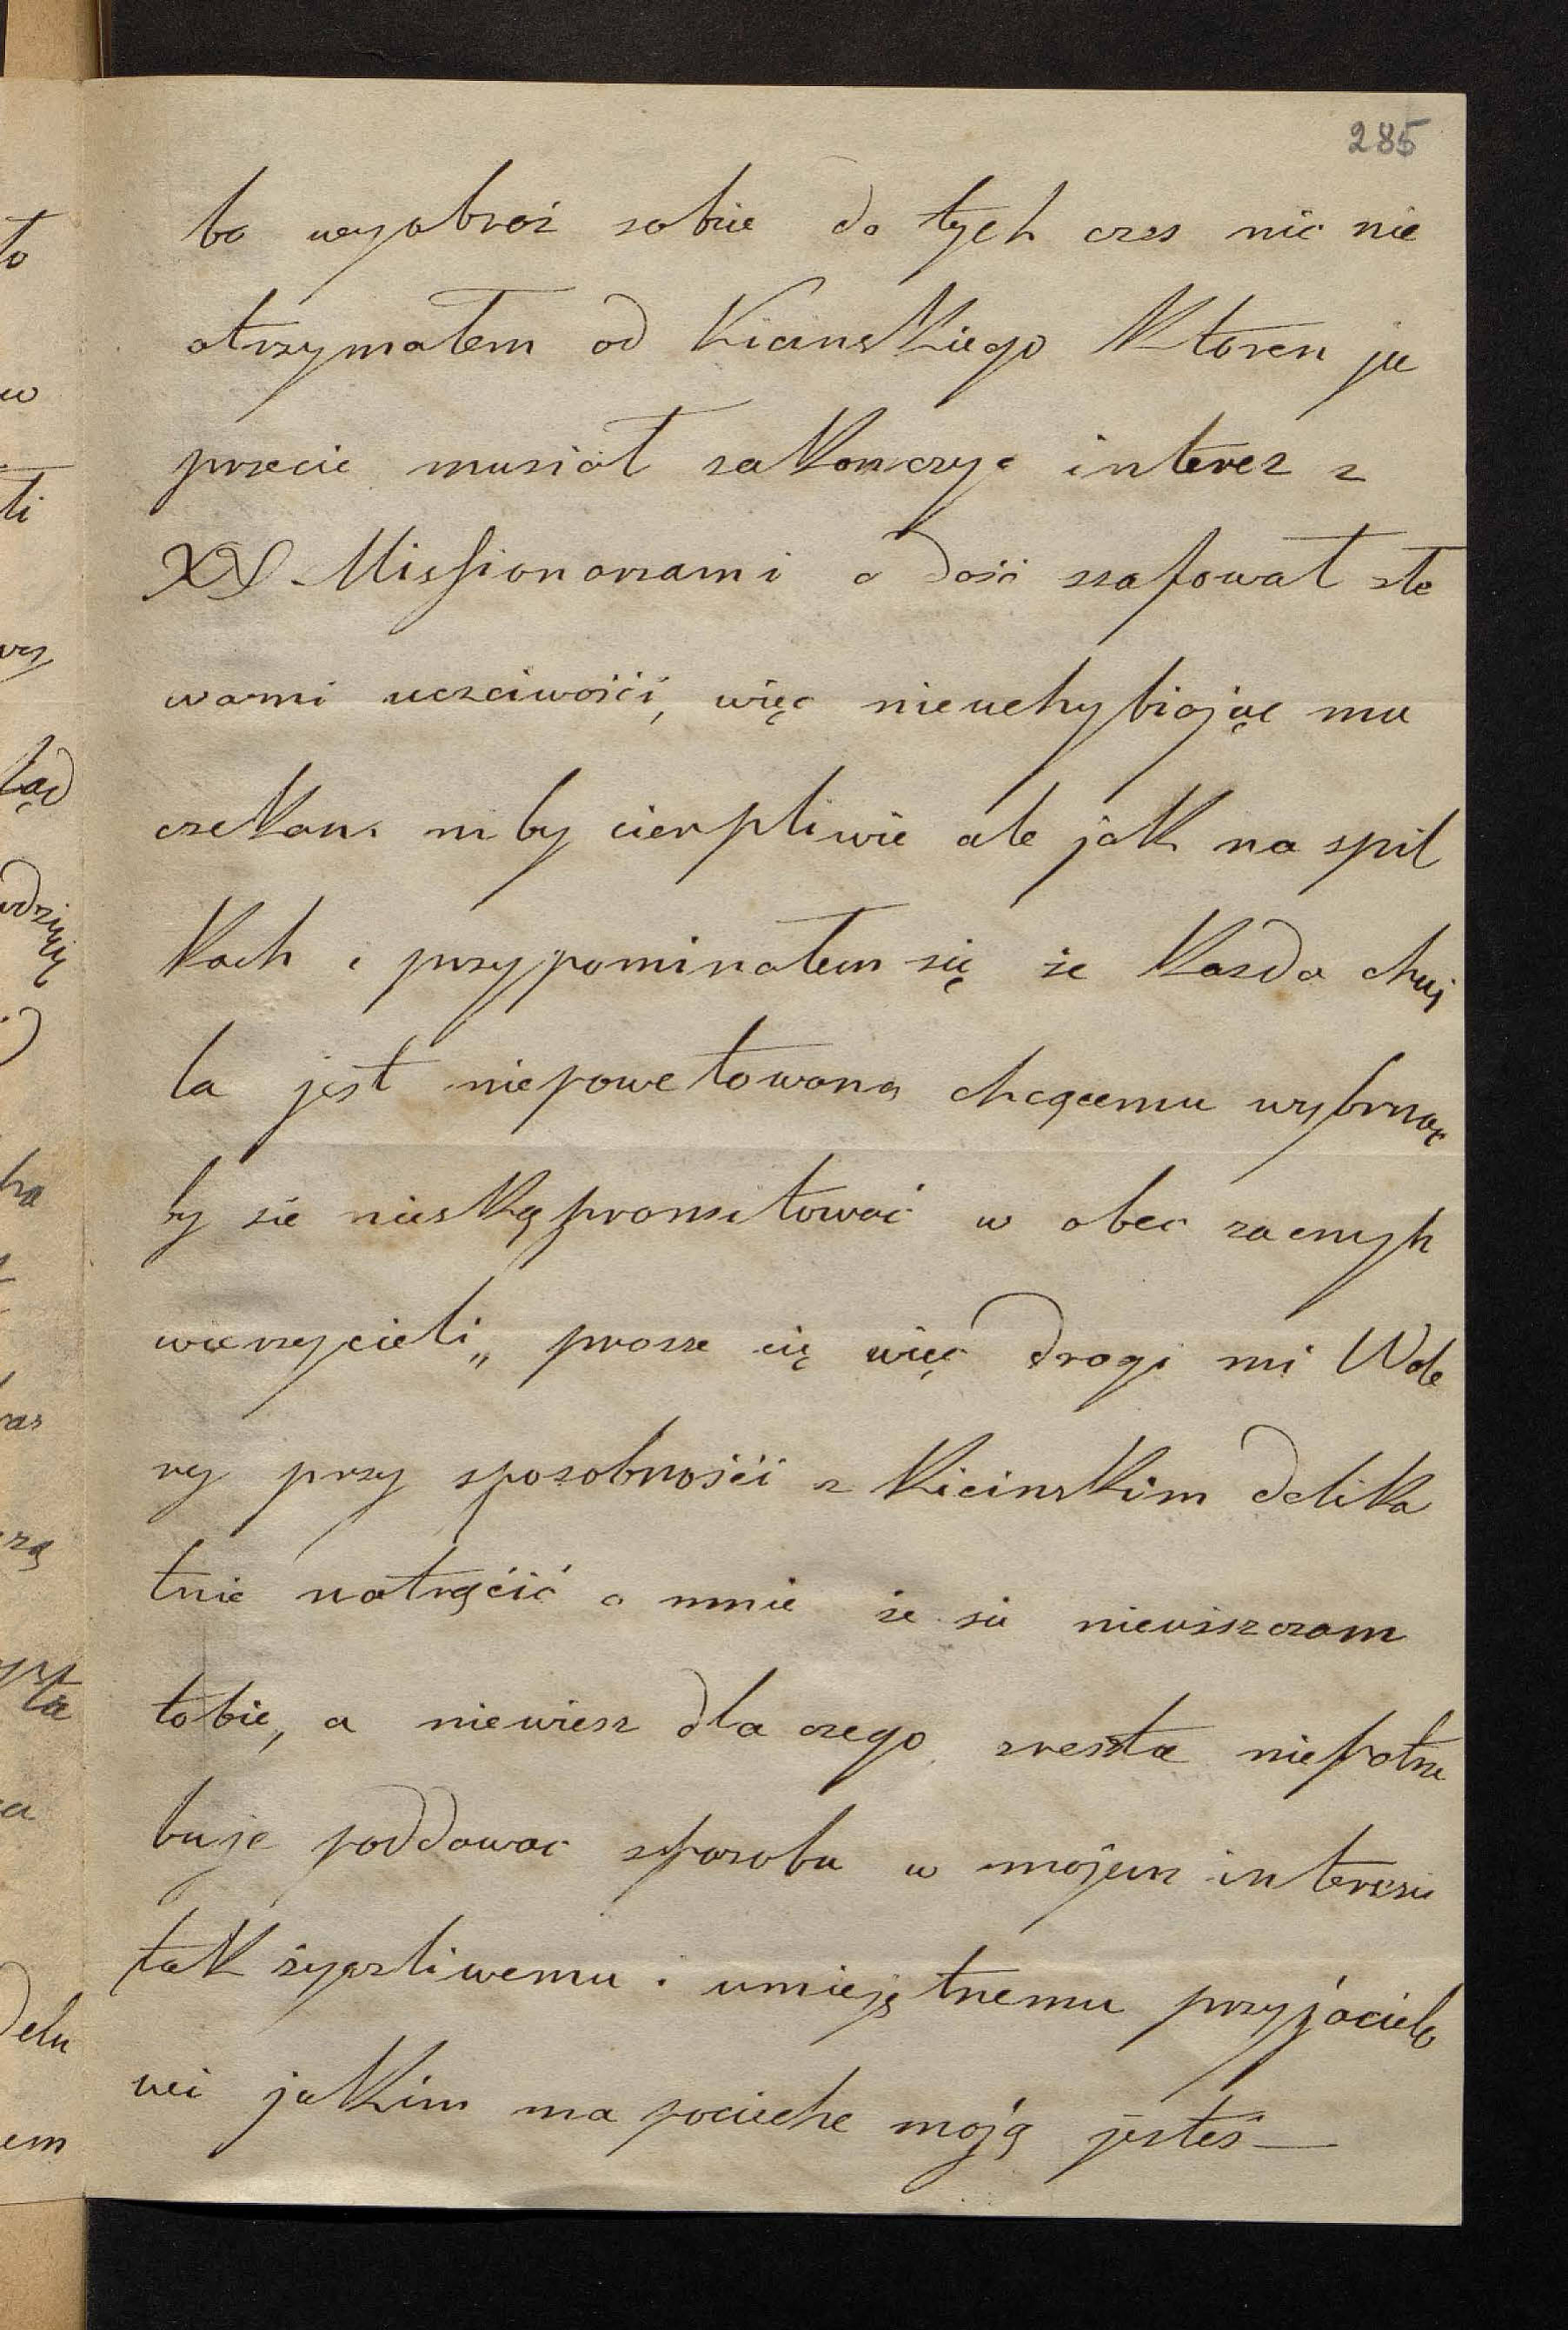 285
bo wyobroź sobie do tych czas nic nie
otrzymałem od Kicinskiego Ktoren ju
przecie musiał zakonczyc interez z
XX Missionarzami a dość szafował sło
wami uczciwośći, więc nieuchybiając mu
czekam niby cierpliwie ale jak na szpil
kach i przypominałem się że każda chwi
la jest niepowetowaną chcącemu wybrnąc
by sie nieskąpromitować w obec zacnych
wierzycieli„ prosze cię więc drogi mi Wale
ry przy sposobnośći z Kicinskim delika
tnie natrąćić o mnie że sie nieuiszczam
tobie, a niewiesz dla czego, zresztą niepotrze
buje poddawac sposobu w mojem interesie
tak życzliwemu i umiejętnemu przyjacielo
wi jakkim na pocieche moją jesteś —
to
w
li
ląd
ha
ras
zą
ysta
a
delu
em